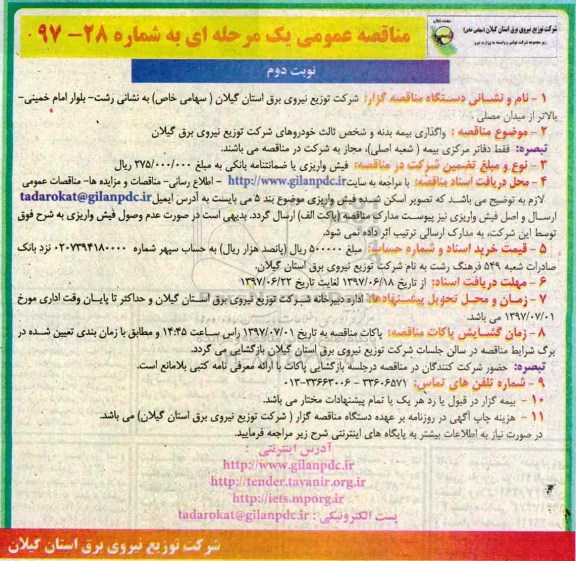 شرکت توزیع نیروی برق استان گیلان (سهامی خاص)
مناقصه عمومی یک مرحله ای به شماره ۲۸- ۰۹۷
نوبت دوم
۱ - نام و نشانی دستگاه مناقصه گزار: شرکت توزیع نیروی برق استان گیلان ( سهامی خاص) به نشانی رشت- بلوار امام خمینی-
بالاتر از میدان مصلی .
۲ - موضوع مناقصه : واگذاری بیمه بدنه و شخص ثالث خودروهای شرکت توزیع نیروی برق گیلان
تبصره: فقط دفاتر مرکزی بیمه ( شعبه اصلی)، مجاز به شرکت در مناقصه می باشند.
۳ - نوع و مبلغ تضمین شرکت در مناقصه: فیش واریزی یا ضمانتنامه بانکی به مبلغ ۲۷۵/۰۰۰/۰۰۰ ریال
۴ - محل دریافت اسناد مناقصه: با مراجعه به سایت http://www.gilanpdc.ir - اطلاع رسانی- مناقصات و مزایده ها- مناقصات عمومی
لازم به توضیح می باشد که تصویر اسکن شده فیش واریزی موضوع بند ۵ می بایست به آدرس ایمیل tadarokat@gilanpdc.ir
ارسال و اصل فیش واریزی نیز پیوست مدارک مناقصه (پاکت الف) ارسال گردد. بدیهی است در صورت عدم وصول فیش واریزی به شرح فوق
توسط این شرکت، به مدارک ارسالی ترتیب اثر داده نمی شود.
۵ - قیمت خرید اسناد و شماره حساب: مبلغ ۵۰۰۰۰۰ ریال (پانصد هزار ریال) به حساب سپهر شماره ۰۲۰۷۳۹۴۱۸۰۰۰۰ نزد بانک
صادرات شعبه ۵۴۹ فرهنگ رشت به نام شرکت توزیع نیروی برق استان گیلان.
۶ - مهلت دریافت اسناد: از تاریخ ۱۳۹۷/۰۶/۱۸ لغایت تاریخ ۱۳۹۷/۰۶/۲۲
۷ - زمان و محل تحویل پیشنهادها: اداره دبیرخانه شرکت توزیع نیروی برق استان گیلان و حداکثر تا پایان وقت اداری مورخ
۱۳۹۷/۰۷/۰۱ می باشد.
۸ - زمان گشایش پاکات مناقصه: پاکات مناقصه به تاریخ ۱۳۹۷/۰۷/۰۱ راس ساعت ۱۴:۴۵ و مطابق با زمان بندی تعیین شده در
برگ شرایط مناقصه در سالن جلسات شرکت توزیع نیروی برق استان گیلان بازگشایی می گردد.
تبصره: حضور شرکت کنندگان در مناقصه درجلسه بازگشایی پاکات با ارائه معرفی نامه کتبی بلامانع است.
۹ - شماره تلفن های تماس: ۳۳۶۰۶۵۷۱ - ۳۳۶۶۳۰۰۶-۰۱۳
۱۰ - بیمه گزار در قبول یا رد هر یک یا تمام پیشنهادات مختار می باشد.
۱۱ - هزینه چاپ آگهی در روزنامه بر عهده دستگاه مناقصه گزار ( شرکت توزیع نیروی برق استان گیلان) می باشد.
در صورت نیاز به اطلاعات بیشتر به پایگاه های اینترنتی شرح زیر مراجعه فرمایید.
آدرس اینترنتی :
http://www.gilanpdc.ir
http://tender.tavanir.org.ir
http://iets.mporg.ir
پست الکترونیکی : tadarokat@gilanpdc.ir
شرکت توزیع نیروی برق استان گیلان